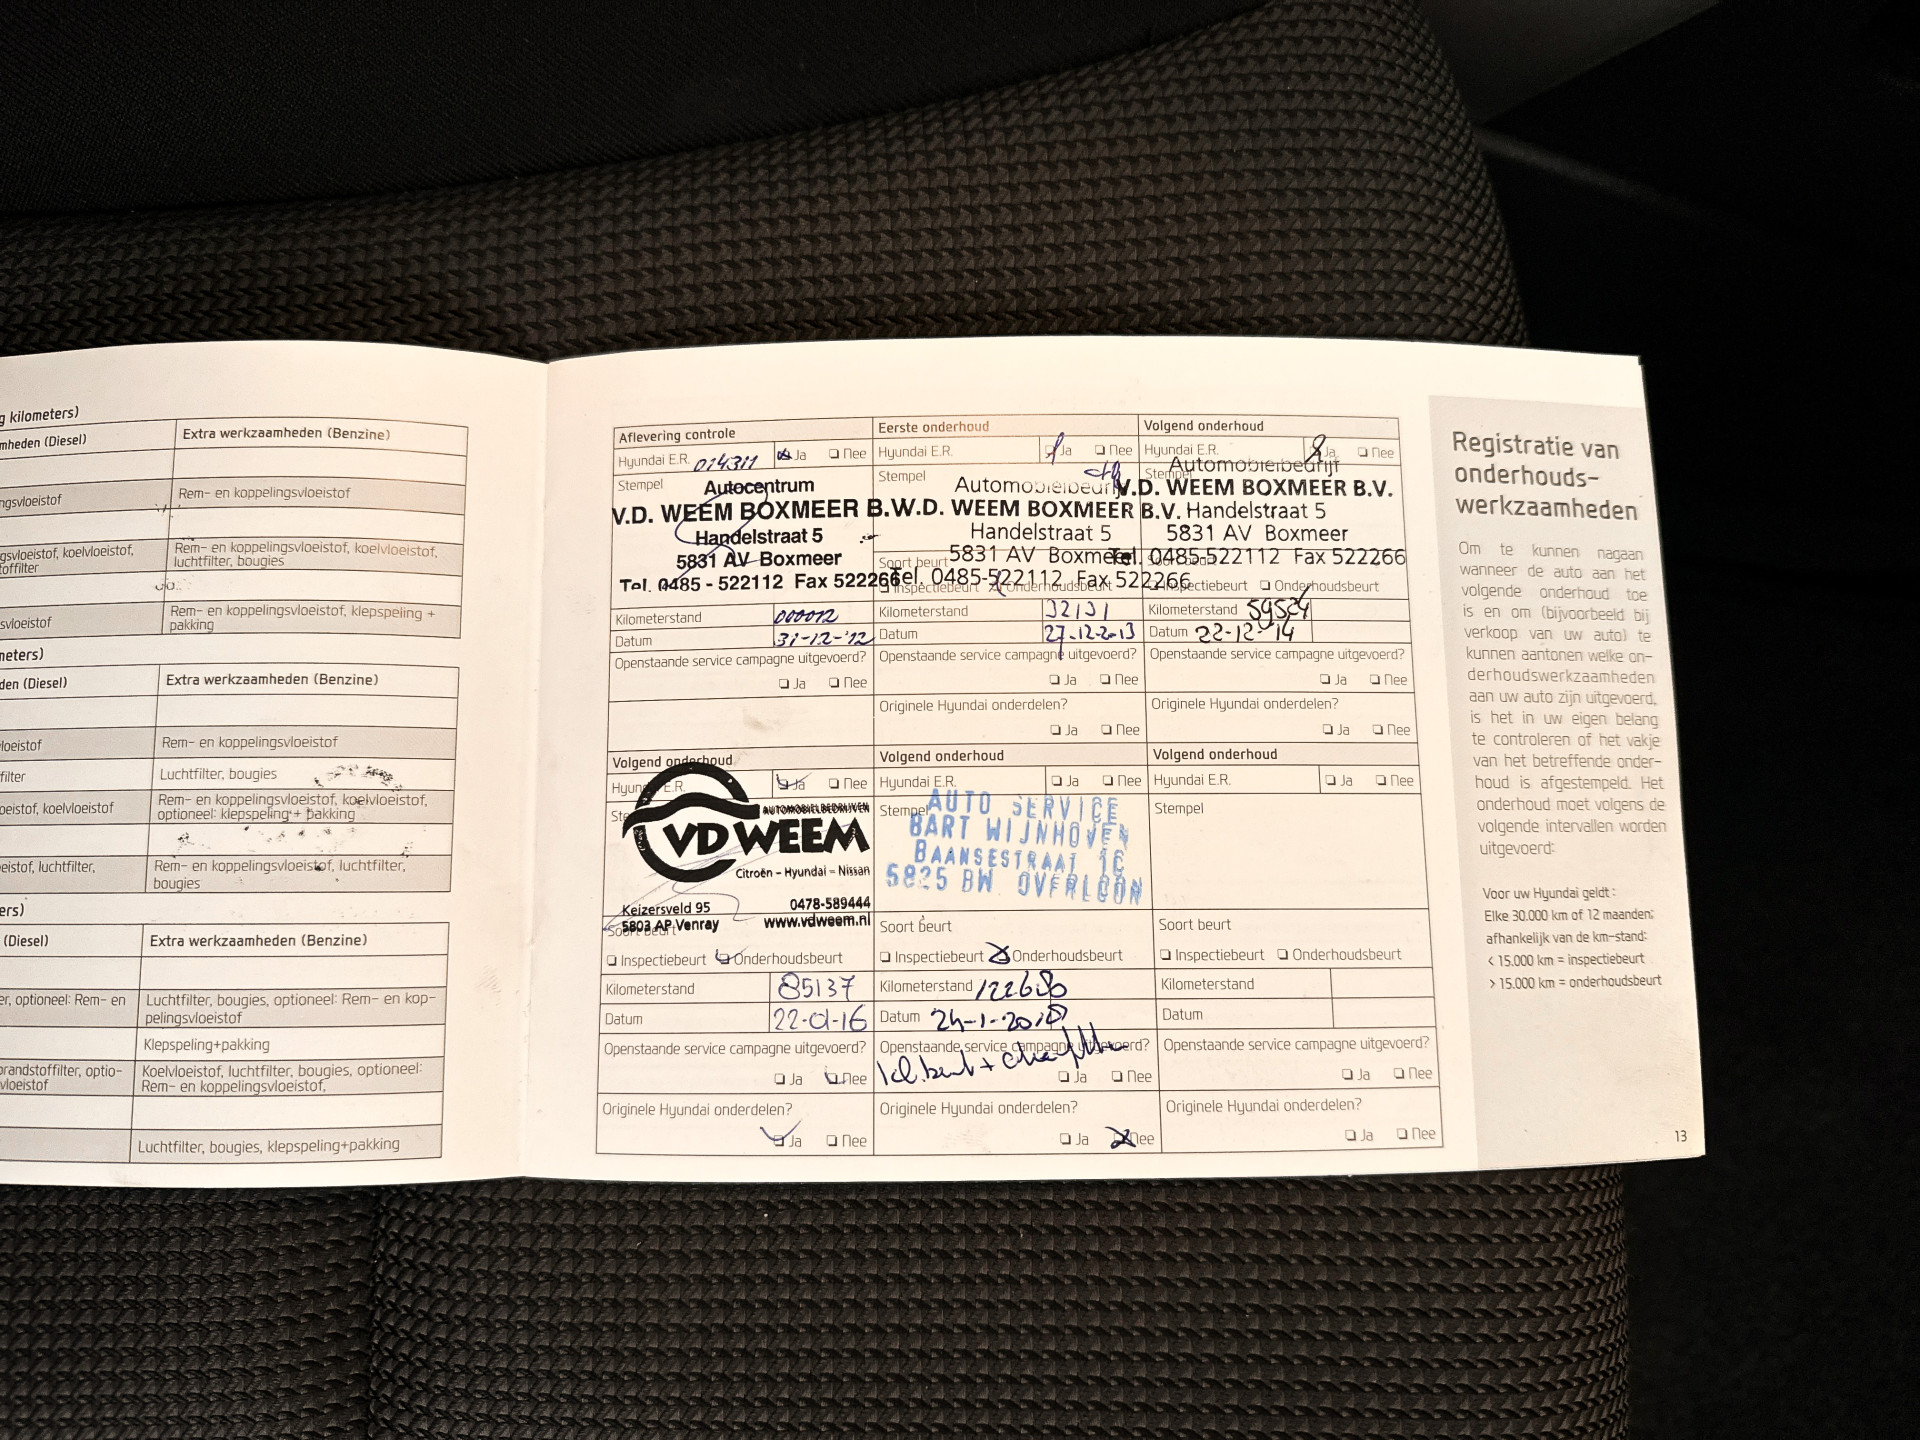 g kilometers)
mheden (Diesel)
Extra werkzaamheden (Benzine)
ngsvloeistof
Rem- en koppelingsvloeistof
gsvloeistof, koelvloeistof,
toffilter
Rem- en koppelingsvloeistof, koelvloeistof,
luchtfilter, bougies
svloeistof
Rem- en koppelingsvloeistof, klepspeling +
pakking
meters)
den (Diesel)
Extra werkzaamheden (Benzine)
loeistof
Rem- en koppelingsvloeistof
filter
Luchtfilter, bougies
oeistof, koelvloeistof
Rem- en koppelingsvloeistof, koelvloeistof,
optioneel: klepspeling + pakking
eistof, luchtfilter,
Rem- en koppelingsvloeistof, luchtfilter,
bougies
ers)
(Diesel)
Extra werkzaamheden (Benzine)
er, optioneel: Rem- en
Luchtfilter, bougies, optioneel: Rem- en kop-
pelingsvloeistof
Klepspeling+pakking
brandstoffilter, optio-
vloeistof
Koelvloeistof, luchtfilter, bougies, optioneel:
Rem- en koppelingsvloeistof,
Luchtfilter, bougies, klepspeling+pakking
Aflevering controle
Hyundai E.R. 014311 Ja Nee
Stempel
Autocentrum
V.D. WEEM BOXMEER B.V.
Handelstraat 5
5831 AV Boxmeer
Tel. 0485 - 522112 Fax 522266
Kilometerstand 000012
Datum 31-12-'12
Openstaande service campagne uitgevoerd?
Ja Nee
Eerste onderhoud
Hyundai E.R. Ja Nee
Stempel
Automobielbedrijf
V.D. WEEM BOXMEER B.V.
Handelstraat 5
5831 AV Boxmeer
Soort beurt
Tel. 0485-522112 Fax 522266
Inspectiebeurt Onderhoudsbeurt
Kilometerstand 32131
Datum 27-12-2013
Openstaande service campagne uitgevoerd?
Ja Nee
Originele Hyundai onderdelen?
Ja Nee
Volgend onderhoud
Hyundai E.R. Ja Nee
Stempel
Automobielbedrijf
V.D. WEEM BOXMEER B.V.
Handelstraat 5
5831 AV Boxmeer
Tel. 0485-522112 Fax 522266
Soort beurt
Inspectiebeurt Onderhoudsbeurt
Kilometerstand 59524
Datum 22-12-'14
Openstaande service campagne uitgevoerd?
Ja Nee
Originele Hyundai onderdelen?
Ja Nee
Volgend onderhoud
Hyundai E.R. Ja Nee
AUTOMOBIELBEDRIJVEN
VD WEEM
Citroën - Hyundai - Nissan
Keizersveld 95 0478-589444
5803 AP Venray www.vdweem.nl
Soort beurt
Inspectiebeurt Onderhoudsbeurt
Kilometerstand 85137
Datum 22-01-16
Openstaande service campagne uitgevoerd?
Ja Nee
Originele Hyundai onderdelen?
Ja Nee
Volgend onderhoud
Hyundai E.R. Ja Nee
Stempel
AUTO SERVICE
BART WIJNHOVEN
BAANSESTRAAT 1C
5825 BW OVERLOON
Soort beurt
Inspectiebeurt Onderhoudsbeurt
Kilometerstand 122680
Datum 24-1-2018
Openstaande service campagne uitgevoerd?
Ja Nee
Originele Hyundai onderdelen?
Ja Nee
Volgend onderhoud
Hyundai E.R. Ja Nee
Stempel
Soort beurt
Inspectiebeurt Onderhoudsbeurt
Kilometerstand
Datum
Openstaande service campagne uitgevoerd?
Ja Nee
Originele Hyundai onderdelen?
Ja Nee
Registratie van
onderhouds-
werkzaamheden
Om te kunnen nagaan
wanneer de auto aan het
volgende onderhoud toe
is en om (bijvoorbeeld bij
verkoop van uw auto) te
kunnen aantonen welke on-
derhoudswerkzaamheden
aan uw auto zijn uitgevoerd,
is het in uw eigen belang
te controleren of het vakje
van het betreffende onder-
houd is afgestempeld. Het
onderhoud moet volgens de
volgende intervallen worden
uitgevoerd:
Voor uw Hyundai geldt:
Elke 30.000 km of 12 maanden;
afhankelijk van de km-stand:
< 15.000 km = inspectiebeurt
> 15.000 km = onderhoudsbeurt
13